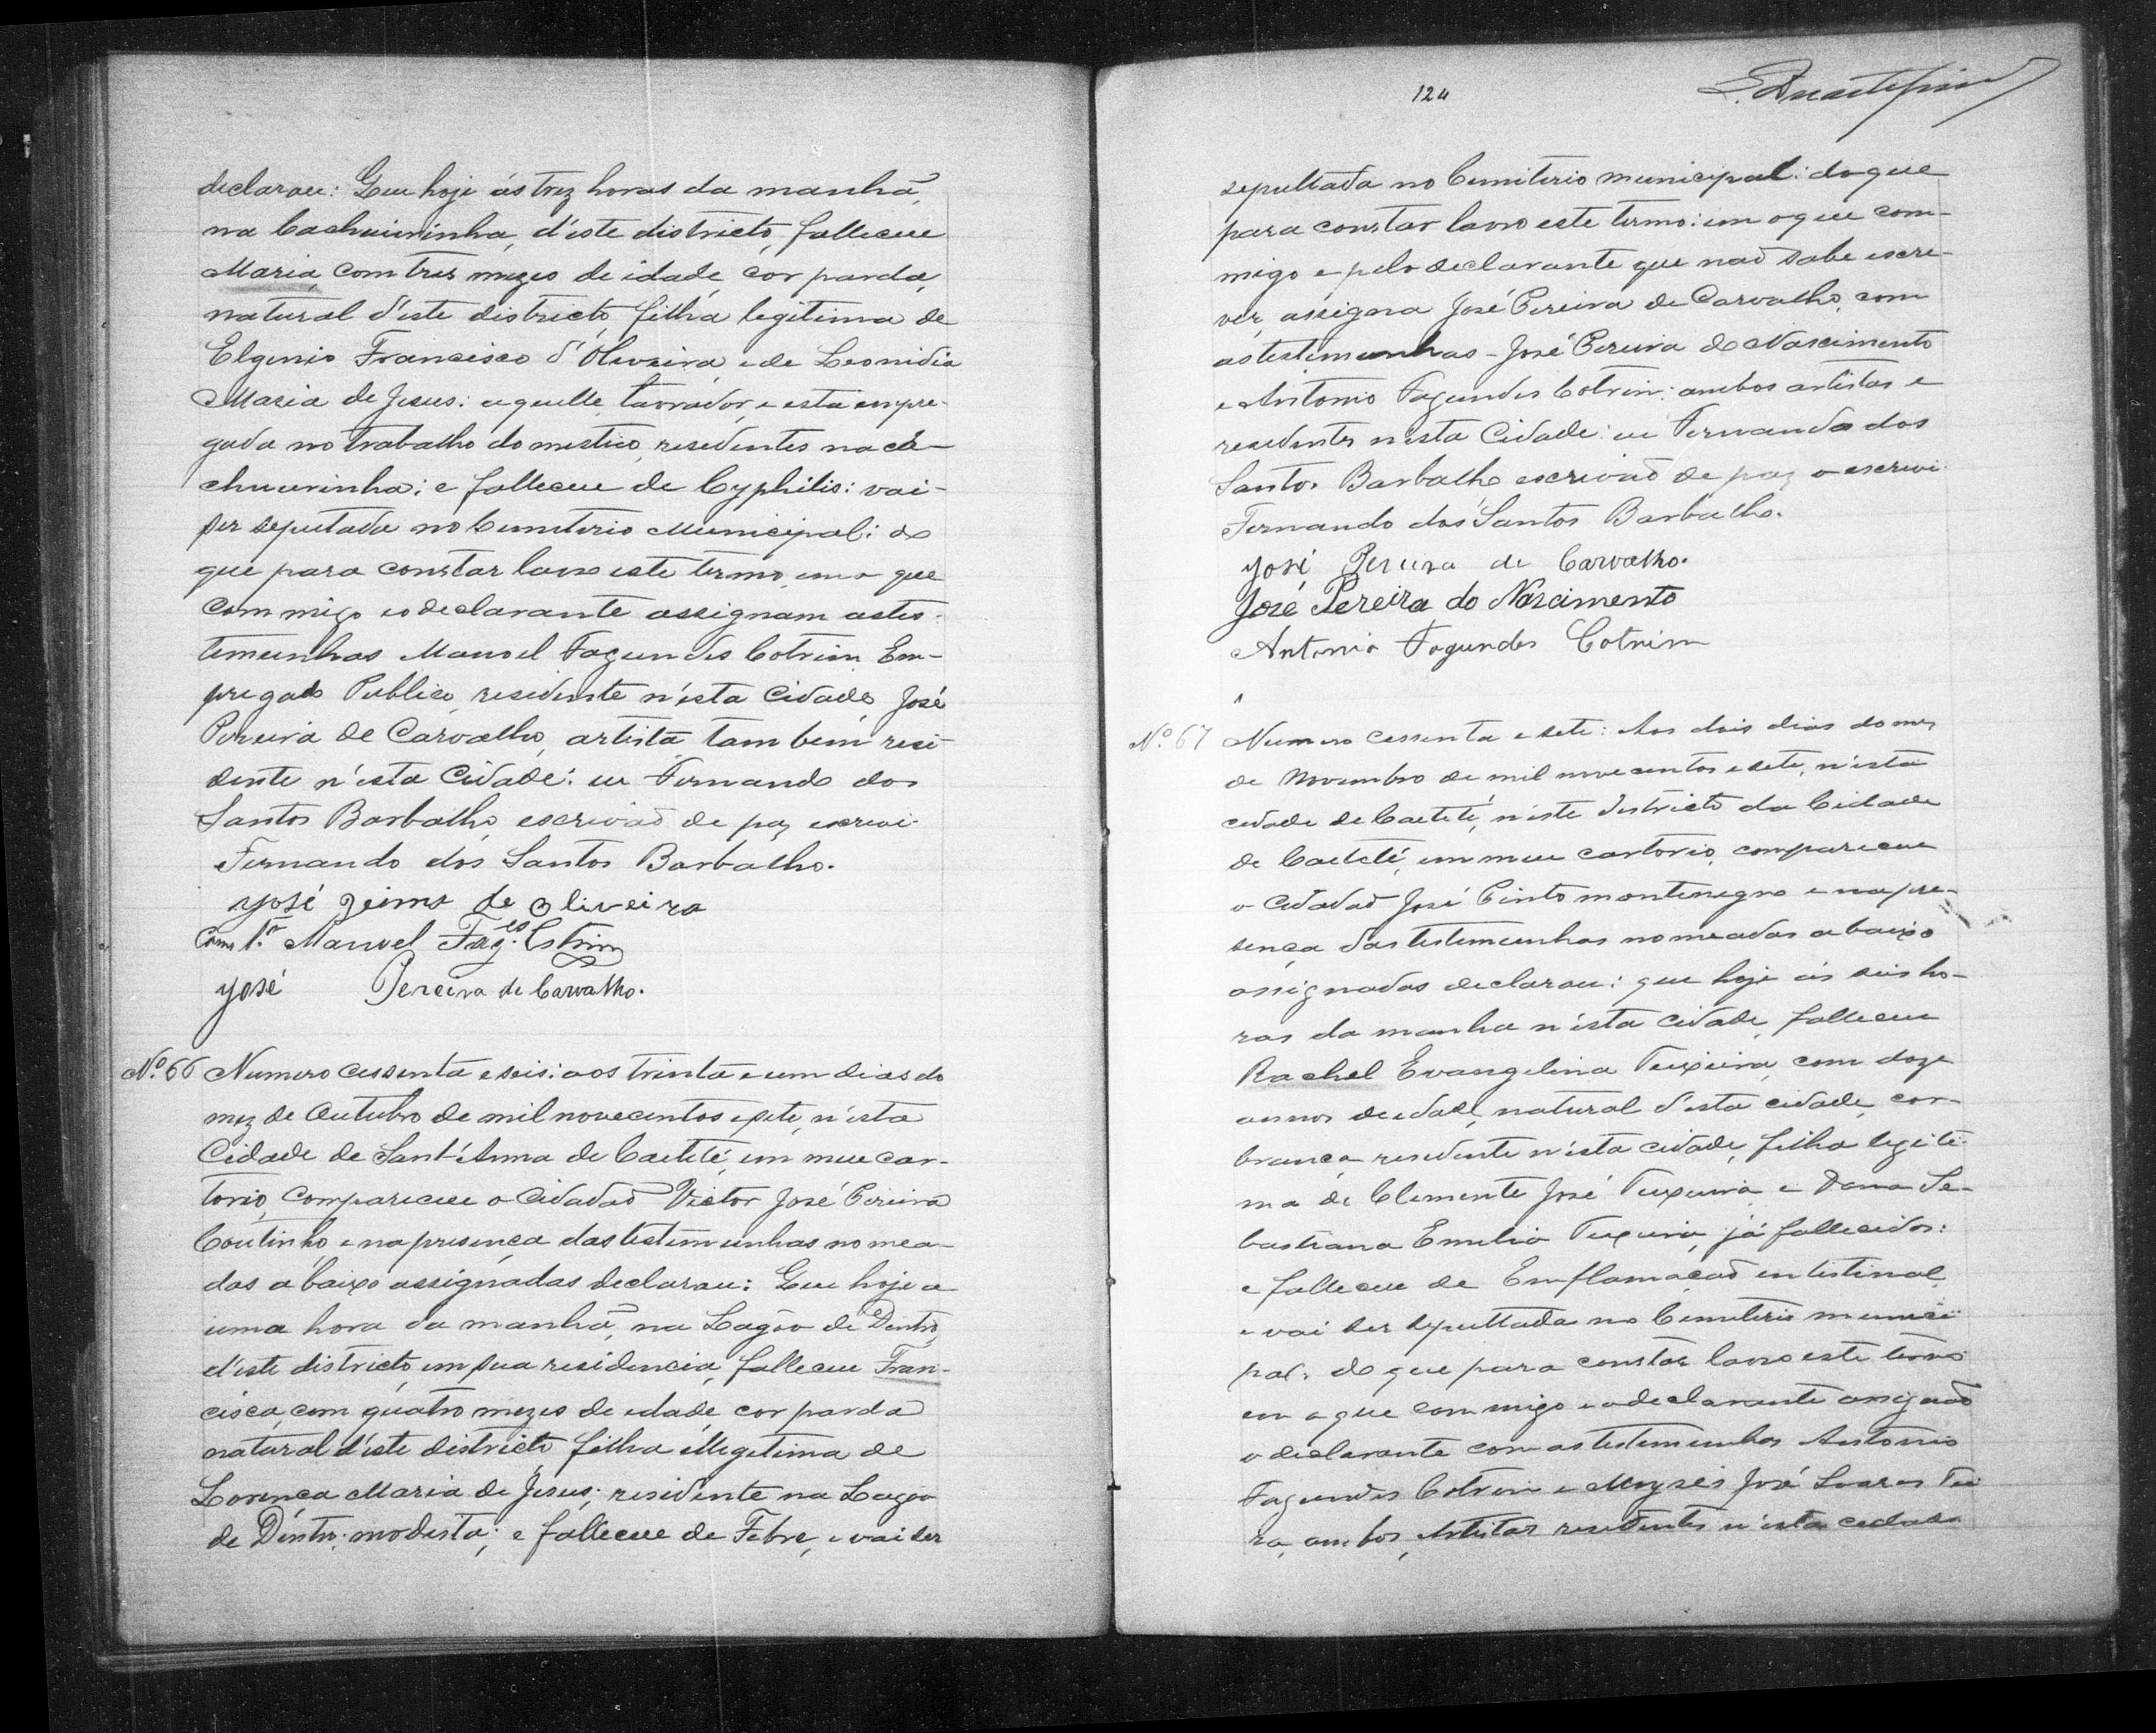 declarou: Que hoje ás trez horas da manhã,
na Cachueirinha, d'este districto, falleceu
Maria, com tres mezes de idade, côr parda,
natural d'este districto, filha legitima de
Elgenio Francisco d'Oliveira e de Leonidia
Maria de Jesus: aquelle, lavrador, e esta empre-
gada no trabalho domestico, residentes na ca-
chueirinha; e falleceu de Cyphilis: vai
ser seputada no Cemiterio Municipal: do
que para constar lavro este termo, em o que
com migo e o declarante assignam as tes-
temunhas Manoel Fagundes Cotrim Em-
pregado Publico, residente n'esta Cidade, José
Pereira de Carvalho, artista tambem resi-
dente n'esta Cidade: eu Fernando dos
Santos Barbalho, escrivaõ de paz escrevi.
Fernando dos Santos Barbalho.
José de Oliveira
Como Manoel Fag.es Cotrim
José Pereira de Carvalho.
Nº 66 Numero cessenta e seis: aos trinta e um dias do
mez de Outubro de mil novecentos e sete, n'esta
Cidade de Sant'Anna de Caeteté, em meu car-
torio, compareceu o Cidadaõ Victor José Pereira
Coutinho, e na presença das testemunhas nomea-
das abaixo assignadas declarou: Que hoje a
uma hora da manhã, na Lagôa de Dentro,
d'este districto, em sua residencia, falleceu Fran-
cisca, com quatro mezes de edade, cor parda
natural d'este districto, filha illegitima de
Lorença Maria de Jesus; residente na Lagôa
de Dentro; modista; e falleceu de Febre, e vai ser
124
sepultada no Cemiterio municipal: do que
para constar lavro este termo: em o que com-
migo e pelo declarante que naõ sabe escre-
ver, assigna José Pereira de Carvalho, com
as testemunhas - José Pereira do Nascimento
e Antonio Fagundes Cotrim: ambos artistas e
residentes n'esta Cidade: eu Fernando dos
Santos Barbalho escrivaõ de paz o escrevi.
Fernando dos Santos Barbalho.
José Pereira de Carvalho.
José Pereira do Nascimento
Antonio Fagundes Cotrim
Nº 67 Numero cessenta e sete: Aos dois dias do mez
de Novembro de mil nove centos e sete, n'esta
cidade de Caeteté, n'este Districto da Cidade
de Caeteté, em meu cartorio, compareceu
o Cidadaõ José Pinto montenegro e na pre-
sença das testemunhas nomeadas abaixo
assignadas declarou: que hoje ás seis ho-
ras da manha n'esta cidade, falleceu
Rachel Evangelina Teixeira, com doze
annos de edade, natural d'esta cidade, cor
branca residente n'esta cidade, filha legiti-
ma de Clemente José Teixeira e Dona Se-
bastiana Emilia Teixeira, já fallecidos:
e falleceu de Emflamaçaõ entistinal
e vai ser sepultada no Cemiterio munici-
pal: do que para constar lavro este termo
em o que commigo e o declarante assignaõ
o declarante com as testemunhas Antonio
Fagundes Cotrim e Moyses José Soares Tei
ra, ambos, Artistas residentes n'esta cidade